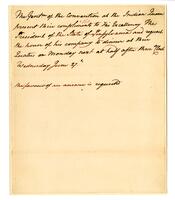 The Gent.n of the Convention at the Indian Queen
present their compliments to His Excellency The
President of the State of and request
the honor of his company to dinner at their
Quarter on Monday next at half after
Wednesday June 27.th
The favour of an answer is requested